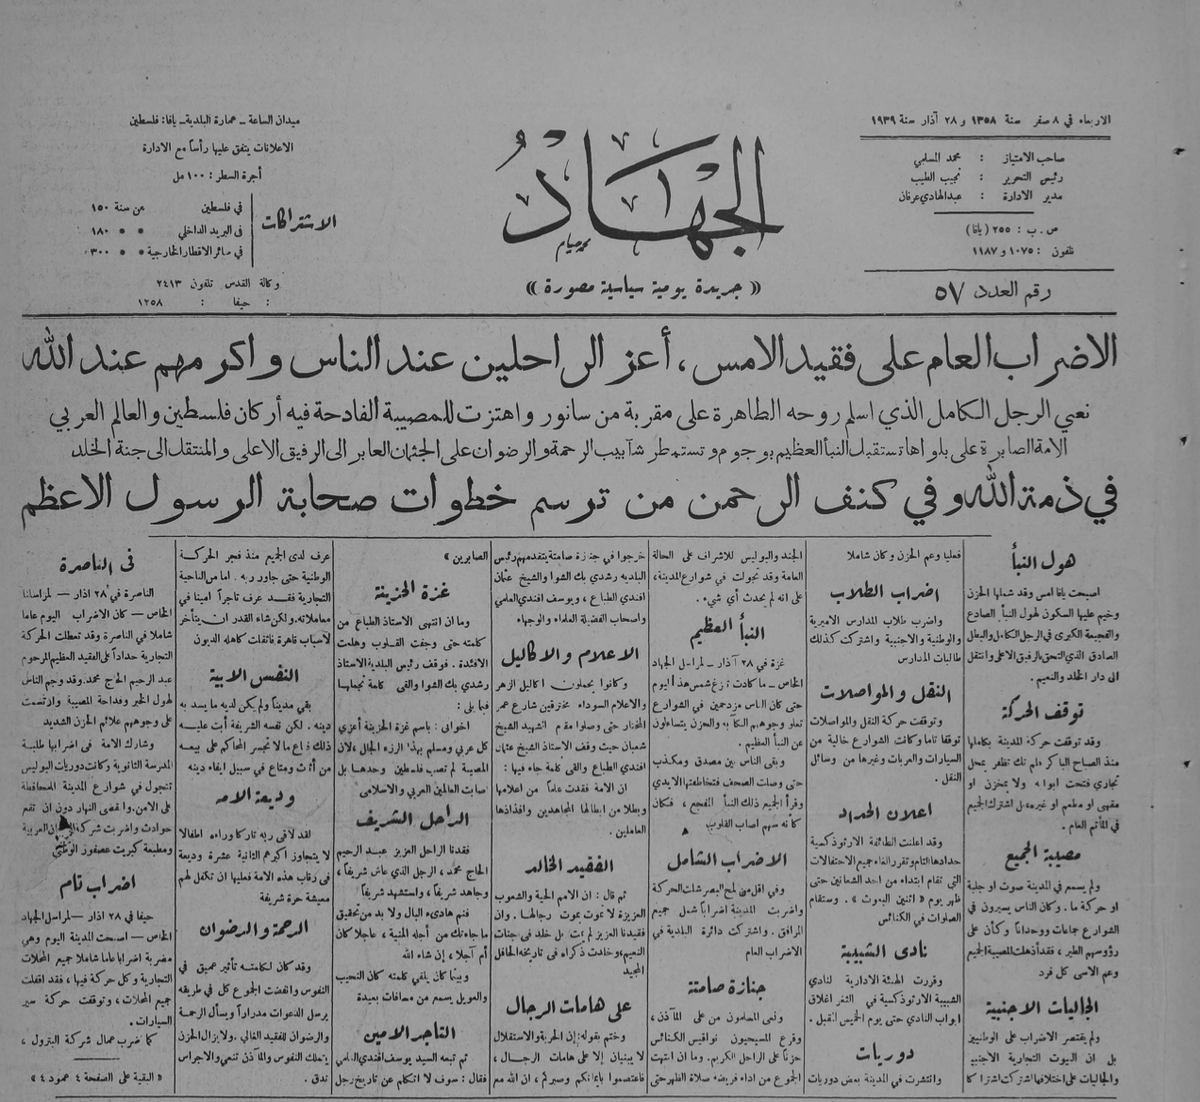 الاربعاء في ٨ صفر سنة ١٣٥٨ و ٢٨ آذار سنة ١٩٣٩
صاحب الامتياز : محمد السلمي
رئيس التحرير : نجيب الطيب
مدير الادارة : عبدالهادي عرفان
ص . ب : ٢٥٥ (يافا)
تلفون : ١٠٧٥ و ١١٨٧
رقم العدد ٥٧
الجهاد
« جريدة يومية سياسية مصورة »
ميدان الساعة ـ عمارة البلدية ـ يافا : فلسطين
الاعلانات يتفق عليها رأساً مع الادارة
أجرة السطر : ١٠٠ مل
الاشتراكات
في فلسطين عن سنة ١٥٠
في البريد الداخلي » » ١٨٠
في سائر الاقطار الخارجية » » ٣٠٠
وكالة القدس تلفون ٢٤١٣
: حيفا : ١٢٥٨
الاضراب العام على فقيد الامس ، أعز الراحلين عند الناس واكرمهم عند الله
نعي الرجل الكامل الذي اسلم روحه الطاهرة على مقربة من سانور واهتزت للمصيبة الفادحة فيه أركان فلسطين والعالم العربي
الامة الصابرة على بلواها تستقبل النبأ العظيم بوجوم وتستمطر شآبيب الرحمة والرضوان على الجثمان العابر الى الرفيق الاعلى والمنتقل الى جنة الخلد
في ذمة الله وفي كنف الرحمن من ترسم خطوات صحابة الرسول الاعظم
هول النبأ
اصبحت يافا امس وقد شملها الحزن
وخيم عليها السكون لهول النبأ الصادع
والفجيعة الكبرى في الرجل الكامل والبطل
الصادق الذي التحق بالرفيق الاعلى وانتقل
الى دار الخلد والنعيم .
توقف الحركة
وقد توقفت حركة المدينة بكاملها
منذ الصباح الباكر فلم تك تظفر بمحل
تجاري فتحت ابوابه ولا بمخزن او
مقهى او مطعم او غيره بل اشترك الجميع
في المأتم العام .
مصيبة الجميع
ولم يسمع في المدينة صوت او جلبة
او حركة ما . وكان الناس يسيرون في
الشوارع جماعات ووحدانا وكأن على
رؤوسهم الطير ، فقد أذهلت المصيبة الجميع
وعم الاسى كل فرد
الجاليات الاجنبية
ولم يقتصر الاضراب على الوطنيين
بل ان البيوت التجارية الاجنبية
والجاليات على اختلافها اشتركت اشتراكا
فعليا وعم الحزن وكان شاملا
اضراب الطلاب
واضرب طلاب المدارس الاميرية
والوطنية والاجنبية واشتركت كذلك
طالبات المدارس
النقل والمواصلات
وتوقفت حركة النقل والمواصلات
توقفا تاما وكانت الشوارع خالية من
السيارات والعربات وغيرها من وسائل
النقل .
اعلان الحداد
وقد اعلنت الطائفة الارثوذكسية
حدادها التام وتقرر الغاء جميع الاحتفالات
التي تقام ابتداء من احد الشعانين حتى
ظهر يوم « اثنين البعوث » . وستقام
الصلوات في الكنائس
نادى الشبيبة
وقررت الهيئة الادارية لنادي
الشبيبة الارثوذكسية في الثغر اغلاق
ابواب النادي حتى يوم الخميس المقبل .
دوريات
وانتشرت في المدينة بعض دوريات
الجند والبوليس للاشراف على الحالة
العامة وقد تجولت في شوارع المدينة ،
على انه لم يحدث أي شيء .
النبأ العظيم
غزة في ٢٨ آذار ـ لمراسل الجهاد
الخاص ـ ما كادت تبزغ شمس هذا اليوم
حتى كان الناس مزدحمين في الشوارع
تعلو وجوههم الكآبة والحزن يتساءلون
عن النبأ العظيم .
وبقى الناس بين مصدق ومكذب
حتى وصلت الصحف فتخاطفتها الايدي
وقرأ الجميع ذلك النبأ المفجع ، فكان
كأنه سهم اصاب القلوب
الاضراب الشامل
وفي اقل من لمح البصر شلت الحركة
واضربت المدينة اضراباً شمل جميع
المرافق . واشتركت دائرة البلدية في
الاضراب العام
جنازة صامتة
ونعى المسلمون من على المآذن ،
وقرع المسيحيون نواقيس الكنائس
حزناً على الراحل الكريم . وما ان انتهت
الجموع من اداء فريضة صلاة الظهر حتى
خرجوا في جنازة صامتة يتقدمهم رئيس
البلدية رشدي بك الشوا والشيخ عثمان
افندي الطباع ، ويوسف افندي العلمي
واصحاب الفضيلة العلماء والوجهاء
الاعلام والاكاليل
وكانوا يحملون اكاليل الزهر
والاعلام السوداء مخترقين شارع عمر
المختار حتى وصلوا مقام الشهيد الشيخ
شعبان حيث وقف الاستاذ الشيخ عثمان
افندي الطباع والقى كلمة جاء فيها :
ان الامة فقدت علماً من اعلامها
وبطلا من ابطالها المجاهدين وافذاذها
العاملين .
الفقيد الخالد
ثم قال : ان الامم الحية والشعوب
العزيزة لا تموت بموت رجالها . وان
فقيدنا العزيز لم يمت بل خلد في جنات
النعيم وخلدت ذكراه في تاريخه الحافل
المجيد
على هامات الرجال
وختم بقوله : إن الحرية والاستقلال
لا يبنيان إلا على هامات الرجال ،
فاعتصموا بايمانكم وصبركم ، ان الله مع
الصابرين »
غزة الحزينة
وما ان انتهى الاستاذ الطباع من
كلمته حتى وجفت القلوب وهلعت
الافئدة . فوقف رئيس البلدية الاستاذ
رشدي بك الشوا والقى كلمة نجملها
فيما يلي :
اخواني : باسم غزة الحزينة أعزي
كل عربي ومسلم بهذا الرزء الجلل ، لان
المصيبة لم تصب فلسطين وحدها بل
اصابت العالمين العربي والاسلامي .
الراحل الشريف
فقدنا الراحل العزيز عبد الرحيم
الحاج محمد ، الرجل الذي عاش شريفاً ،
وجاهد شريفاً ، واستشهد شريفاً
فنم هادىء البال ولا بد من تحقيق
ما جاهدت من أجله المنية ، عاجلا كان
أم آجلا ، إن شاء الله
وبينما كان يلقي كلمته كان النحيب
والعويل يسمع من مسافات بعيدة
التاجر الامين
ثم تبعه السيد يوسف افندي العلمي
فقال : سوف لا اتكلم عن تاريخ رجل
عرف لدى الجميع منذ فجر الحركة
الوطنية حتى جاور ربه . اما من الناحية
التجارية فقد عرف تاجراً امينا في
معاملاته . ولكن شاء القدر ان يتأخر
لاسباب قاهرة فاثقلت كاهله الديون
النفس الابية
بقي مديناً ولم يكن لديه ما يسد به
دينه . لكن نفسه الشريفة أبت عليه
ذلك فباع ما لا تجسر المحاكم على بيعه
من أثاث ومتاع في سبيل ايفاء دينه
وديعة الامه
لقد لاقى ربه تاركا وراءه اطفالا
لا يتجاوز اكبرهم الثانية عشرة وديعة
في رقاب هذه الامة فعليها ان تكفل لهم
معيشة حرة شريفة
الرحمة والرضوان
وقد كان لكلمته تأثير عميق في
النفوس وانفضت الجموع كل في طريقه
يرسل الدعوات مدراراً ويسأل الرحمة
والرضوان للفقيد الغالي . ولا يزال الحزن
يتملك النفوس والمآذن تنعي والاجراس
تدق .
في الناصرة
الناصرة في ٢٨ اذار ـ لمراسلنا
الخاص ـ كان الاضراب اليوم عاما
شاملا في الناصرة وقد تعطلت الحركة
التجارية حداداً على الفقيد العظيم المرحوم
عبد الرحيم الحاج محمد . وقد وجم الناس
لهول الخبر وفداحة المصيبة وارتسمت
على وجوههم علائم الحزن الشديد
وشارك الامة في اضرابها طلبة
المدرسة الثانوية وكانت دوريات البوليس
تتجول في شوارع المدينة المحافظة
على الامن . وانقضى النهار دون ان تقع
حوادث واضربت شركة العربية
ومطبعة كبريت عصفور الوطني
اضراب تام
حيفا في ٢٨ اذار ـ لمراسل الجهاد
الخاص ـ اصبحت المدينة اليوم وهي
مضربة اضرابا عاما شاملا جميع المحلات
التجارية وكل حركة فيها ، فقد اقفلت
جميع المحلات ، وتوقفت حركة سير
السيارات .
كما ضرب عمال شركة البترول ،
« البقية على الصفحة ٤ عمود ٤ »